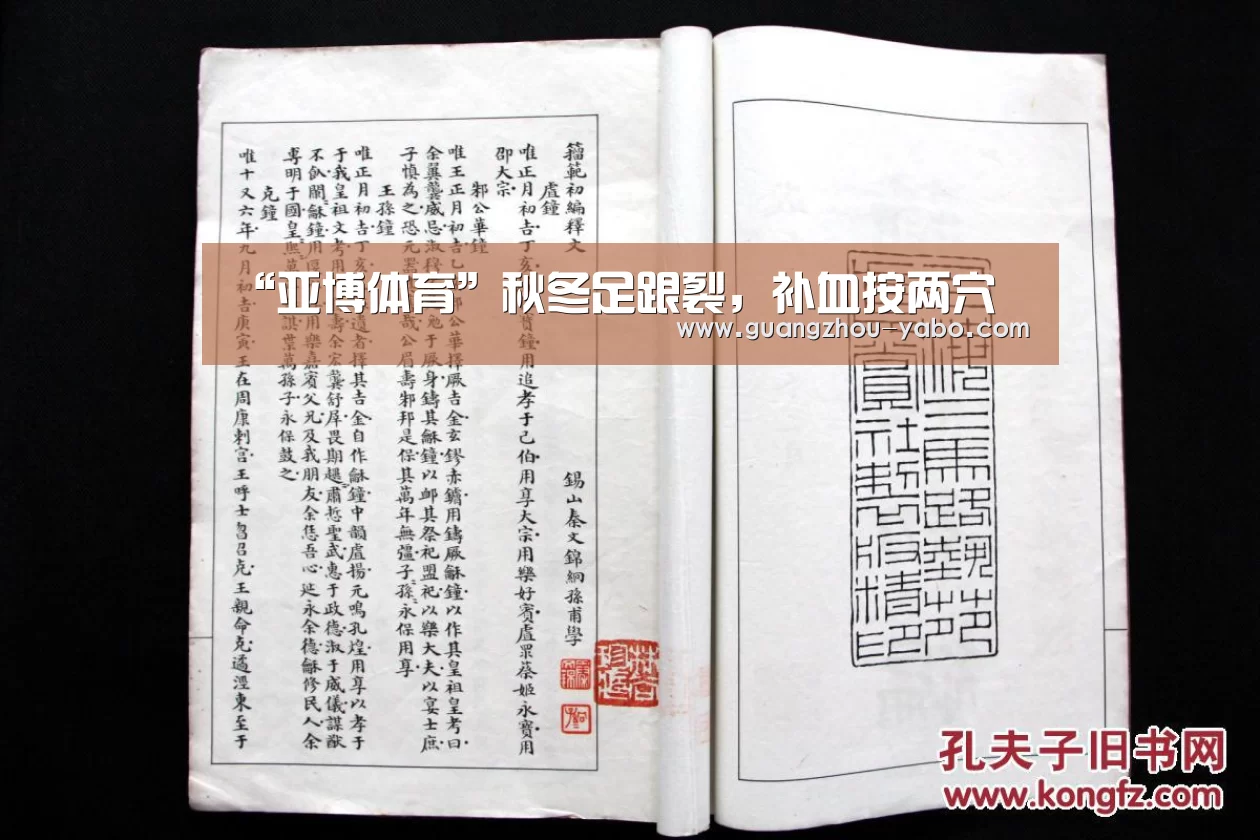 籀範初編釋文
錫山秦文錦絅孫甫學
虘鐘
唯正月初吉丁亥寶鐘用追孝于己伯用享大宗用樂好賓虘眔蔡姬永寶用
邵大宗
邾公華鐘
唯王正月初吉乙邾公華擇厥吉金玄鏐赤鏞用鑄厥龢鐘以作其皇祖皇考曰
余異龔威忌淑穆于厥身鑄其龢鐘以卹其祭祀盟祀以樂大夫以宴士庶
子慎為之恐元器哉公眉壽邾邦是保其萬年無彊子孫永保用享
王孫鐘
唯正月初吉丁亥遺者擇其吉金自作龢鐘中韻虘揚元鳴孔煌用享以孝于
于我皇祖文考用壽余宏龔舒屖畏期趩肅悊聖武惠于政德淑于威儀謀猷
不飤闌龢鐘用匽用樂嘉賓父兄及我朋友余恁吾心延永余德龢修民人余
尃明于國皇熙萬諆枼萬孫子永保鼓之
克鐘
唯十又六年九月初吉庚寅王在周康刺宮王呼士曶召克王親命克遹涇東至于
“亚博体育”秋冬足跟裂，补血按两穴
www.guangzhou-yabo.com
三馬路藝苑
賞社製版精印
孔夫子旧书网
www.kongfz.com